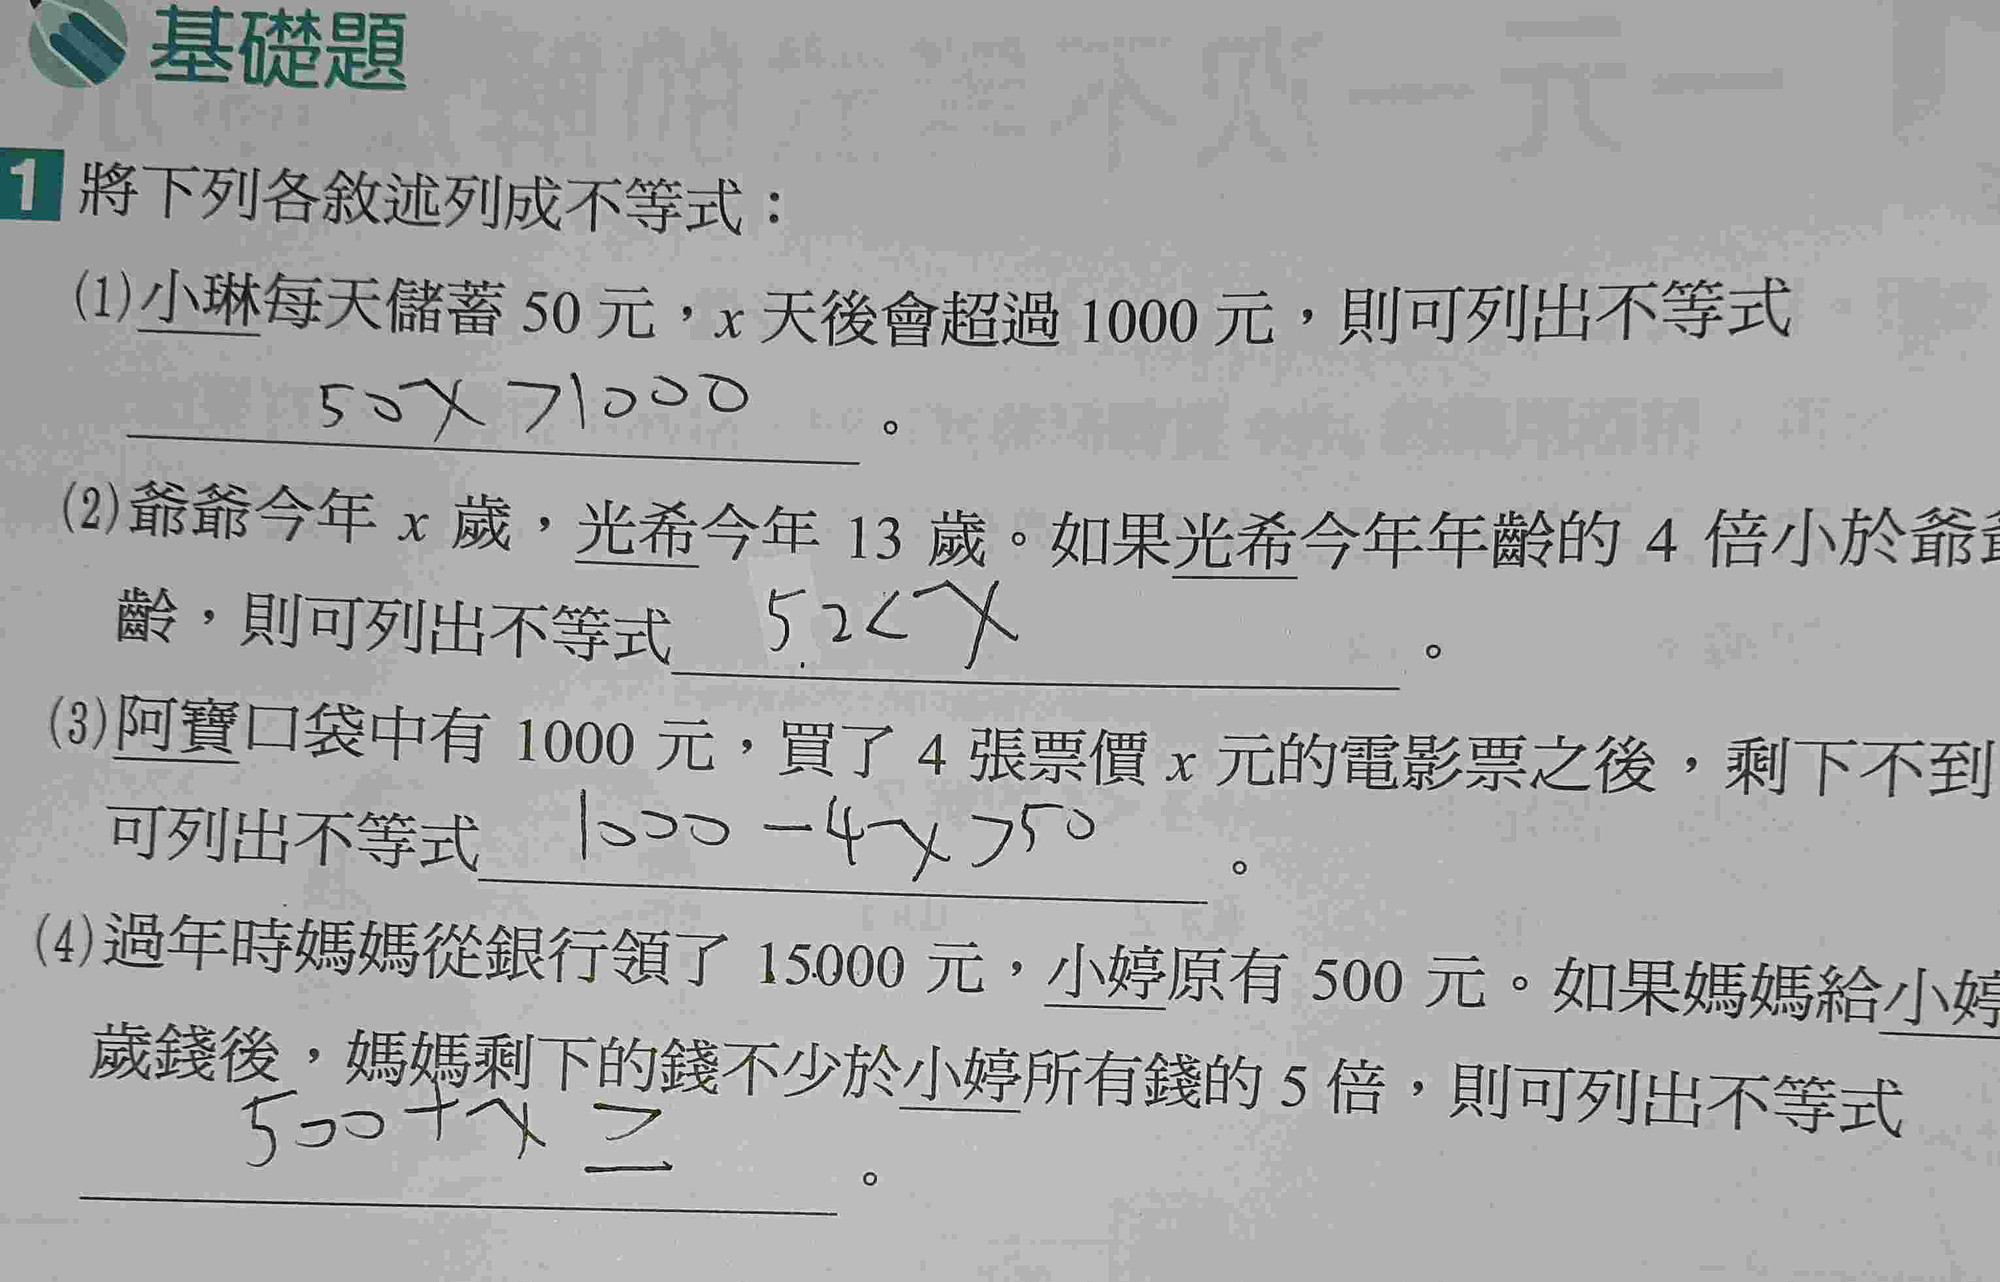 基礎題
1 將下列各敘述列成不等式：
(1)小琳每天儲蓄 50 元，x 天後會超過 1000 元，則可列出不等式
50x>1000 。
(2)爺爺今年 x 歲，光希今年 13 歲。如果光希今年年齡的 4 倍小於爺
齡，則可列出不等式 52<x 。
(3)阿寶口袋中有 1000 元，買了 4 張票價 x 元的電影票之後，剩下不到
可列出不等式 1000-4x>50 。
(4)過年時媽媽從銀行領了 15000 元，小婷原有 500 元。如果媽媽給小婷
歲錢後，媽媽剩下的錢不少於小婷所有錢的 5 倍，則可列出不等式
500+x≥ 。